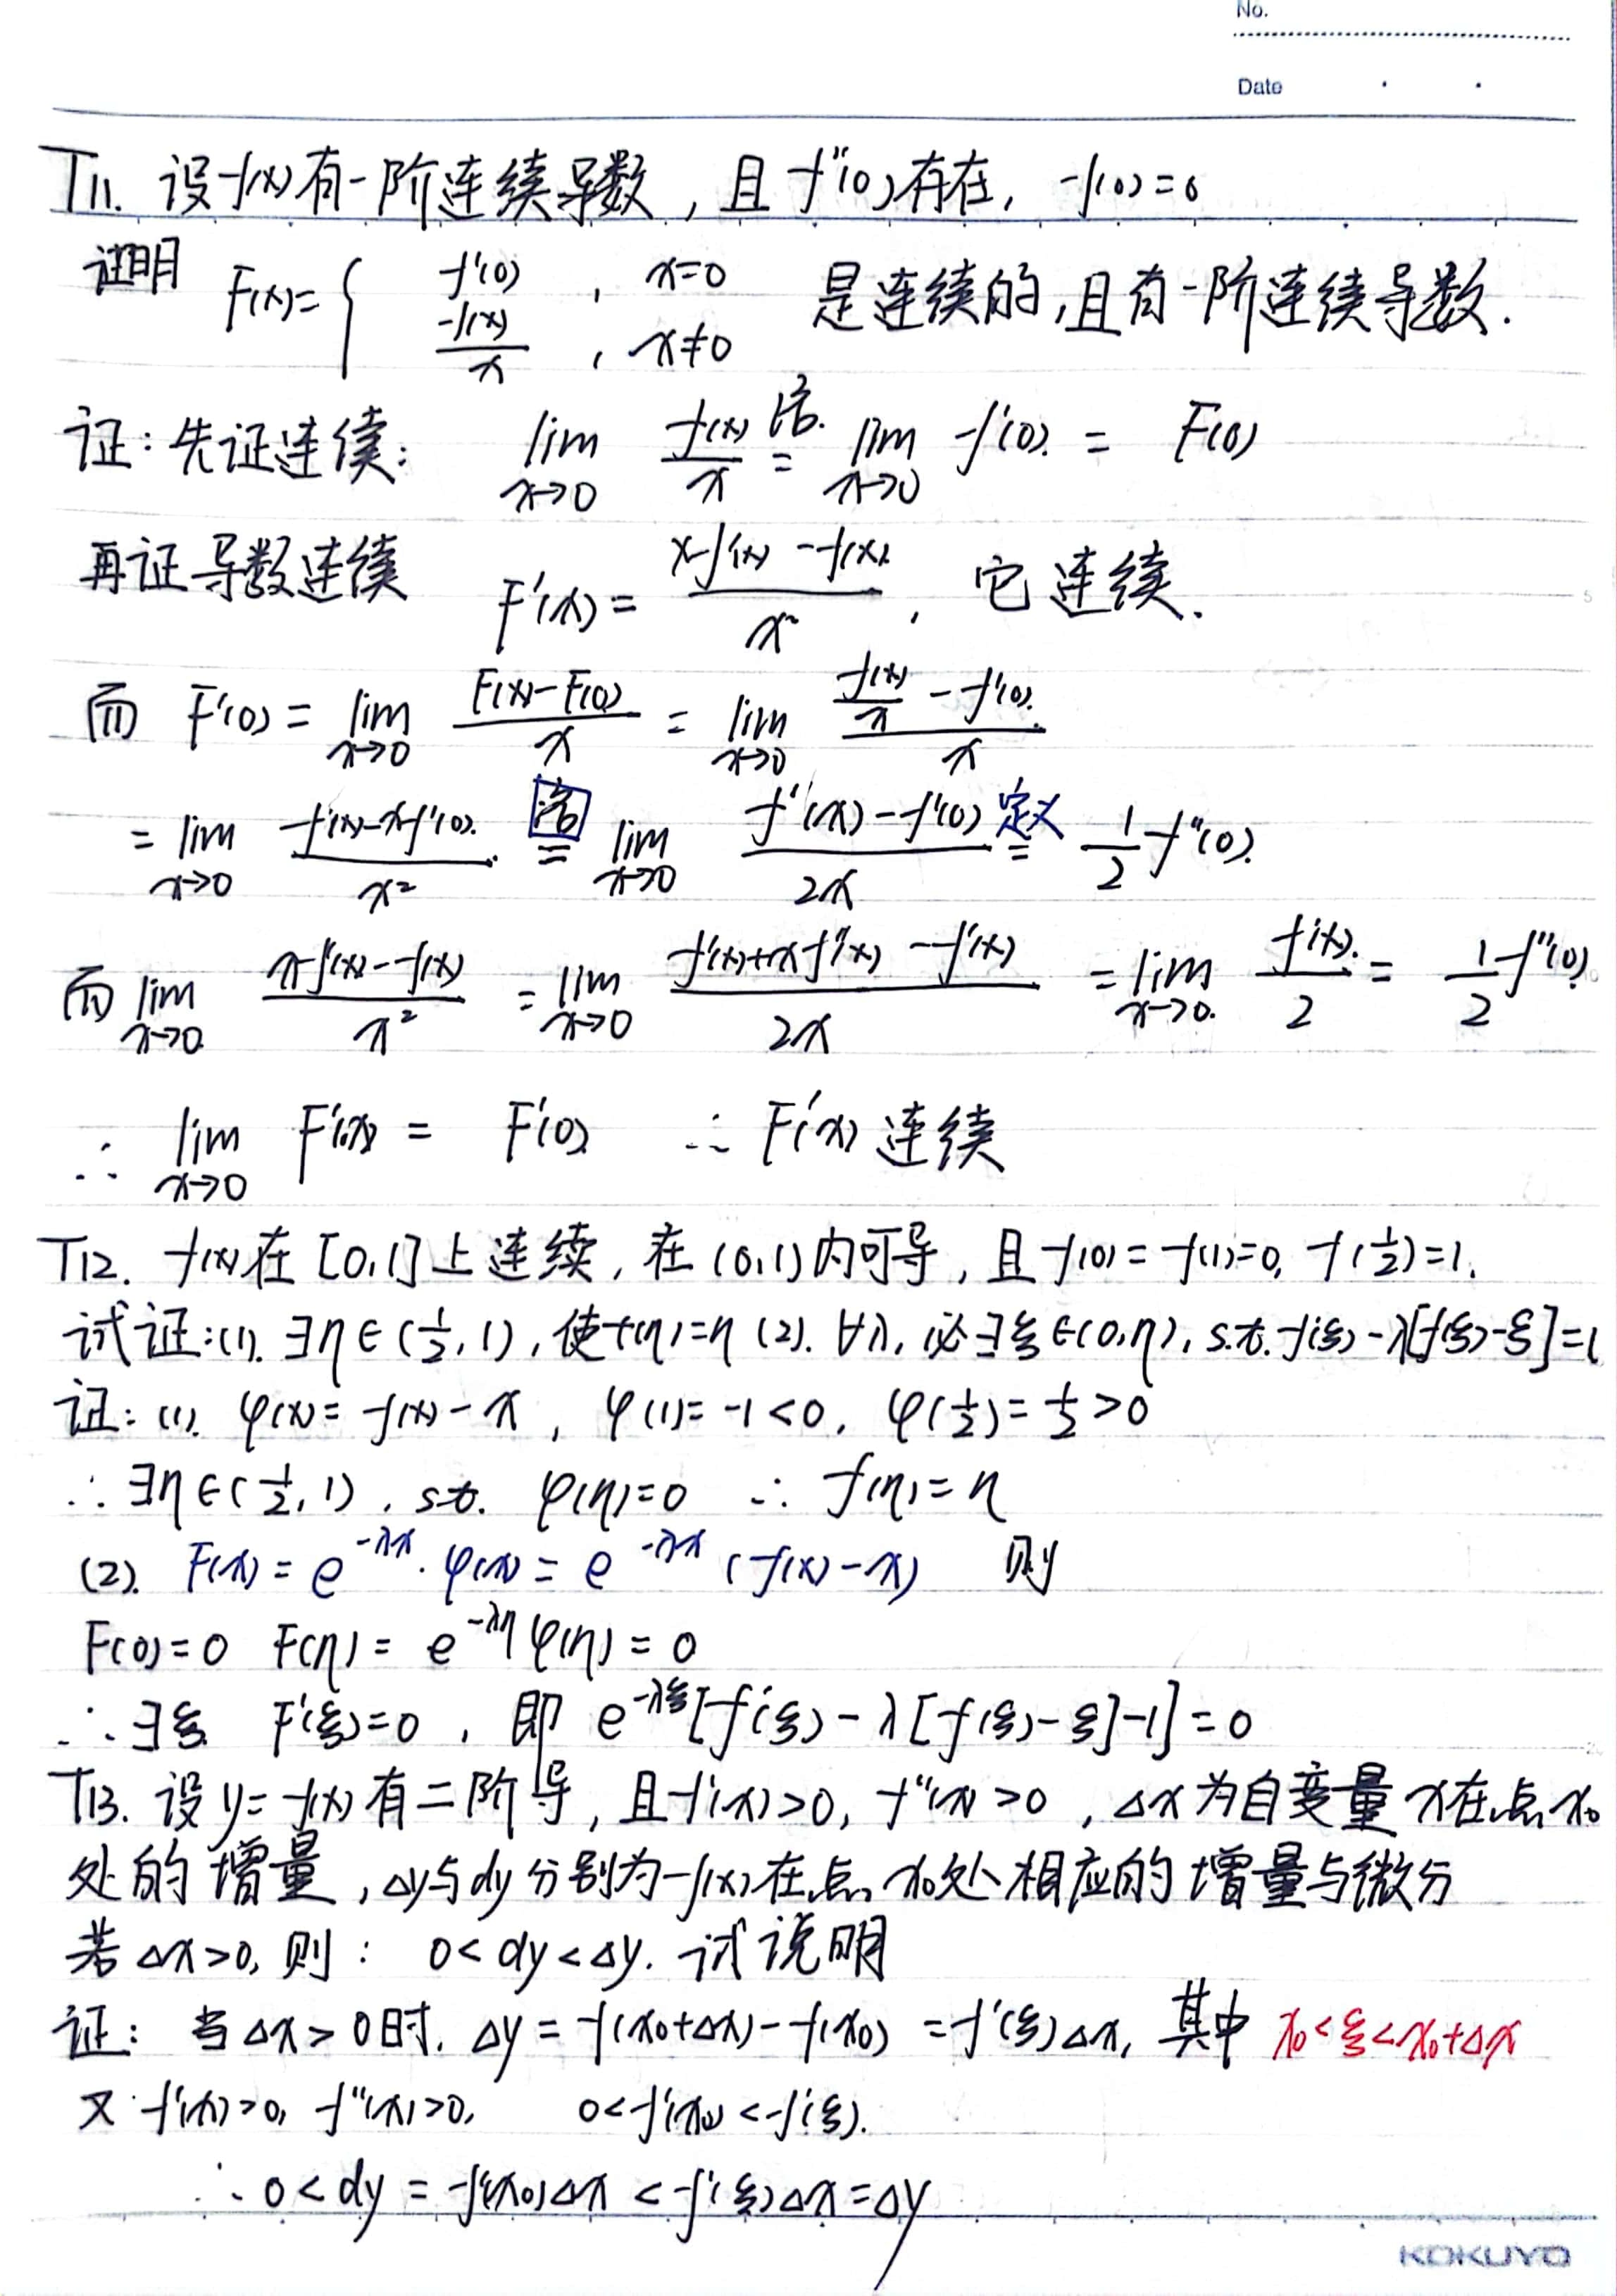 No.
Date
T11. 设f(x)有一阶连续导数，且f''(0)存在，f(0)=0
证明 F(x)={ f'(0) , x=0 是连续的，且有一阶连续导数.
f(x)/x , x≠0
证：先证连续： lim x→0 f(x)/x 洛= lim x→0 f'(0) = F(0)
再证导数连续 F'(x)= (xf'(x)-f(x))/x² , 它连续.
而 F'(0)= lim x→0 (F(x)-F(0))/x = lim x→0 (f(x)/x - f'(0))/x
= lim x→0 (f(x)-xf'(0))/x² 洛= lim x→0 (f'(x)-f'(0))/2x 定义= 1/2 f''(0).
而 lim x→0 (xf'(x)-f(x))/x² = lim x→0 (f'(x)+xf''(x)-f'(x))/2x = lim x→0 f''(x)/2 = 1/2 f''(0)
∴ lim x→0 F'(x) = F'(0) ∴ F'(x) 连续
T12. f(x)在[0,1]上连续，在(0,1)内可导，且f(0)=f(1)=0, f(1/2)=1.
试证:(1). ∃η∈(1/2,1),使f(η)=η (2). ∀λ, 必∃ξ∈(0,η), s.t. f'(ξ)-λ[f(ξ)-ξ]=1
证: (1). φ(x)=f(x)-x , φ(1)=-1<0, φ(1/2)=1/2>0
∴ ∃η∈(1/2,1) , s.t. φ(η)=0 ∴ f(η)=η
(2). F(x)=e^{-λx}·φ(x)=e^{-λx}(f(x)-x) 则
F(0)=0 F(η)=e^{-λη}φ(η)=0
∴ ∃ξ F'(ξ)=0 , 即 e^{-λξ}[f'(ξ)-λ[f(ξ)-ξ]-1]=0
T13. 设y=f(x)有二阶导，且f'(x)>0, f''(x)>0 , Δx为自变量x在点x₀
处的增量，Δy与dy分别为f(x)在点x₀处相应的增量与微分
若Δx>0, 则： 0<dy<Δy. 试说明
证: 当Δx>0时. Δy=f(x₀+Δx)-f(x₀) =f'(ξ)Δx, 其中 x₀<ξ<x₀+Δx
又 f'(x)>0, f''(x)>0, 0<f'(x₀)<f'(ξ).
∴ 0<dy=f'(x₀)Δx<f'(ξ)Δx=Δy
KOKUYO